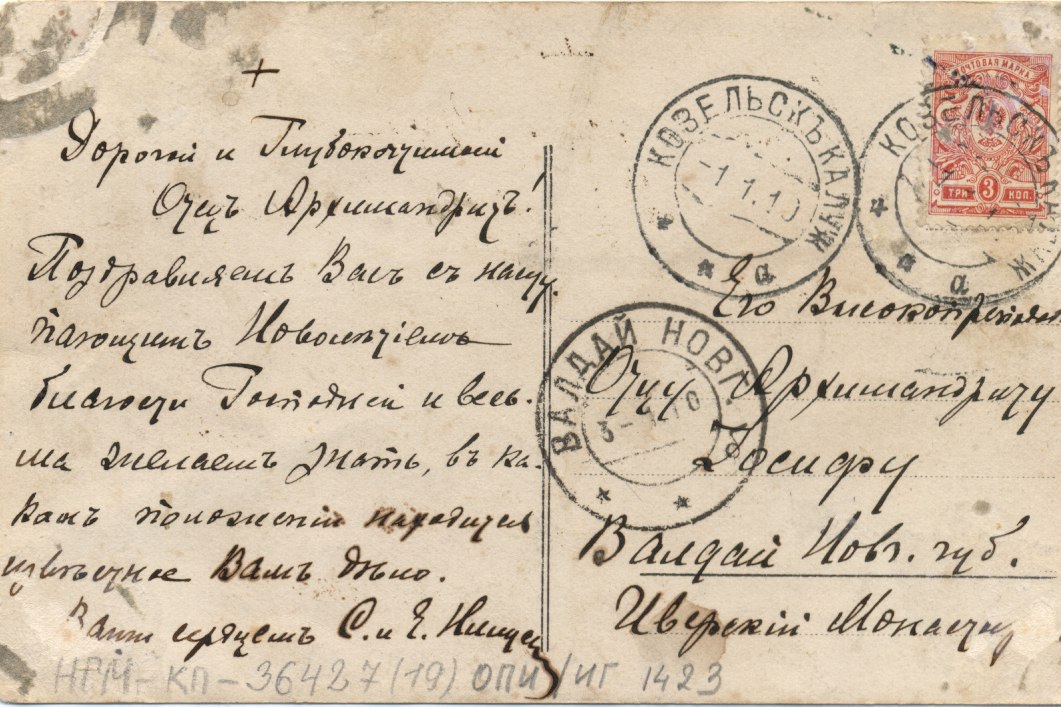 +
Дорогой и Глубокочтимый
Отецъ Архимандритъ!
Поздравляемъ Васъ съ насту-
пающимъ Новолѣтіемъ
благости Господней и весь-
ма желаемъ знать, въ ка-
комъ положеніи находится
извѣстное Вамъ дѣло.
Ваши сердцемъ С. и Е.
НГМ-КП-36427(19) ОПИ/ИГ 1423
ПОЧТОВАЯ МАРКА
ТРИ 3 КОП.
КОЗЕЛЬСКЪ КАЛУЖ
1 1.10
а
КОЗЕЛЬСКЪ
ЖКАЛУЖ
а
ВАЛДАЙ НОВГ.
3- 10
Его Высокопреподоб
Отцу Архимандриту
Іосифу
Валдай Новг. губ.
Иверскій Монастырь